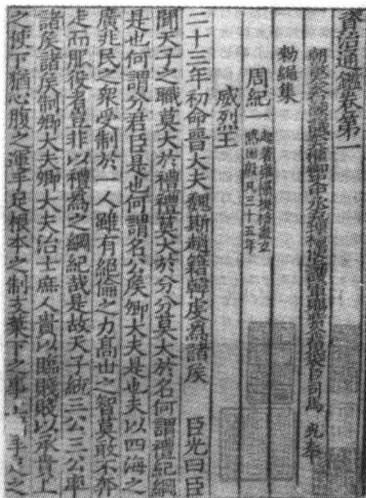 資治通鑑卷第一
朝散大夫諫議大夫權御史中丞充理檢使護軍賜紫金魚袋臣司馬光奉
勑編集
周紀一 起著雍攝提格盡玄
黓困敦凡三十五年
威烈王
二十三年初命晉大夫魏斯趙籍韓虔為諸侯 臣光曰臣
聞天子之職莫大於禮禮莫大於分分莫大於名何謂禮紀綱
是也何謂分君臣是也何謂名公侯卿大夫是也夫以四海之
廣兆民之衆受制於一人雖有絕倫之力高世之智莫敢不奔
走而服役者豈非以禮為之綱紀哉是故天子統三公三公率
諸侯諸侯制卿大夫卿大夫治士庶人貴以臨賤賤以承貴上
之使下猶心腹之運手足根本之制支葉下之事手足之